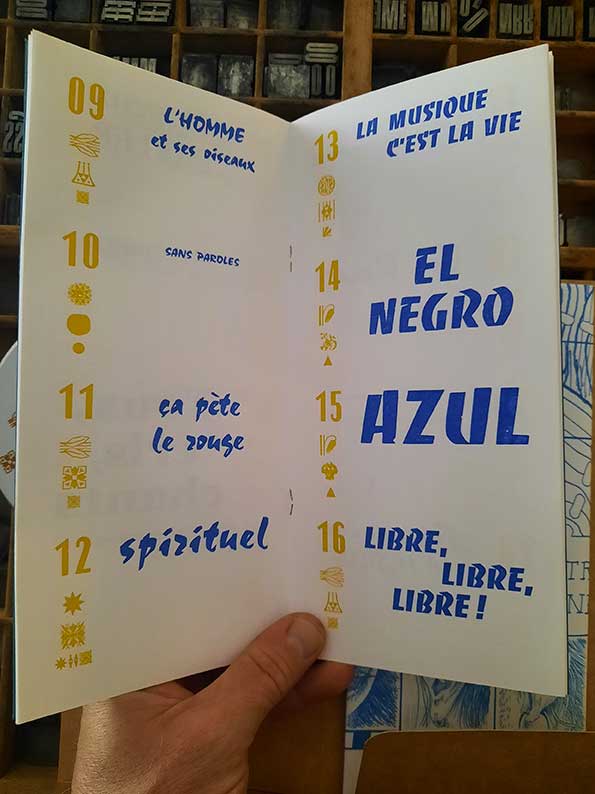 09
L'HOMME
et ses oiseaux
10
SANS PAROLES
11
ça pète
le rouge
12
spirituel
13
LA MUSIQUE
C'EST LA VIE
14
EL
NEGRO
15
AZUL
16
LIBRE,
LIBRE,
LIBRE !